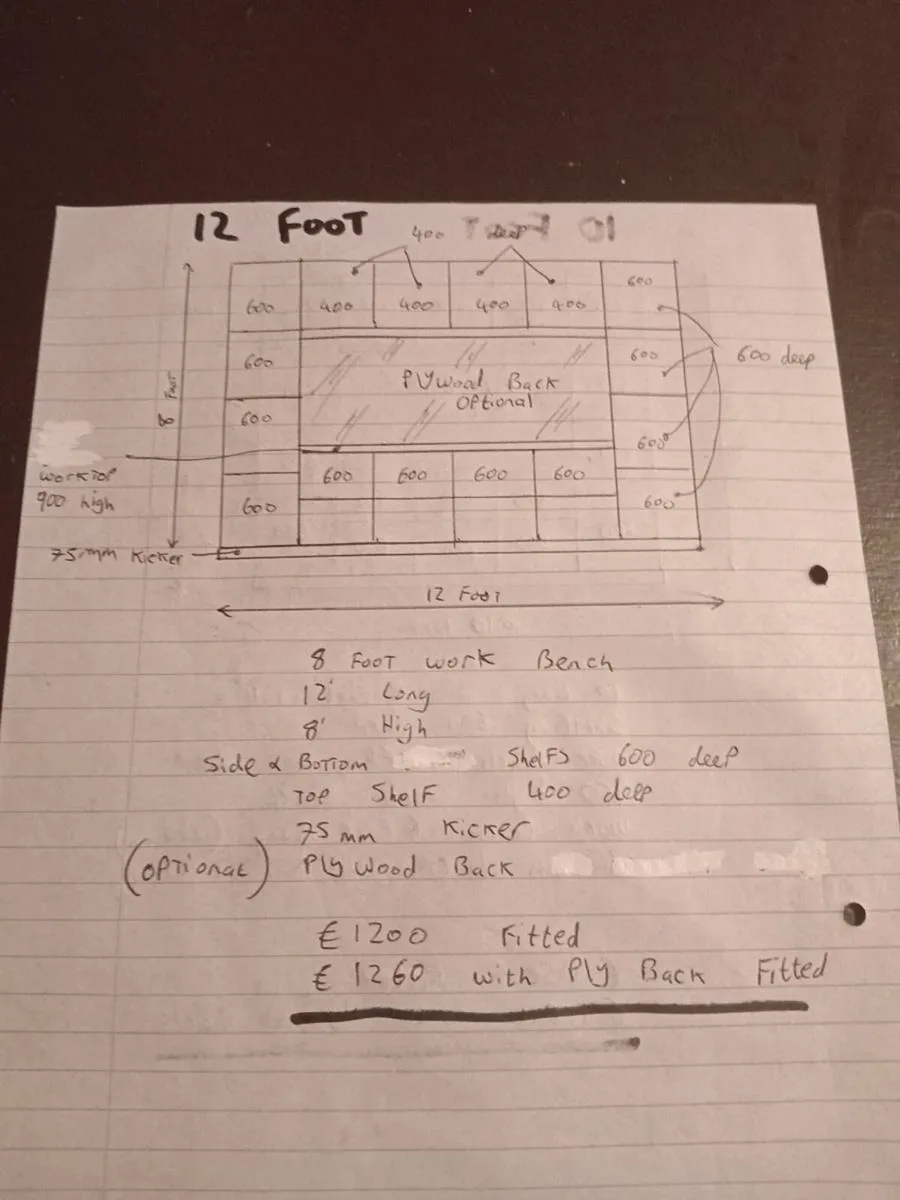 12 FOOT
400
600 400 400 400 400 600
600 600 600 deep
PlYwood Back
OPTional
8 FOOT
600 600
WORKTOP
900 high
600 600 600 600
600 600
75mm Kicker
12 FOOT
8 FOOT WORK Bench
12' Long
8' High
Side & BOTTOM ShelFS 600 deep
TOP ShelF 400 deep
75mm Kicker
(OPTIONAL) Ply Wood Back
€1200 Fitted
€1260 with Ply Back Fitted